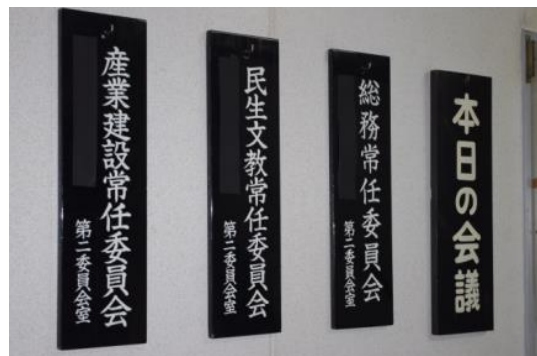 本日の会議
総務常任委員会
第二委員会室
民生文教常任委員会
第二委員会室
産業建設常任委員会
第二委員会室